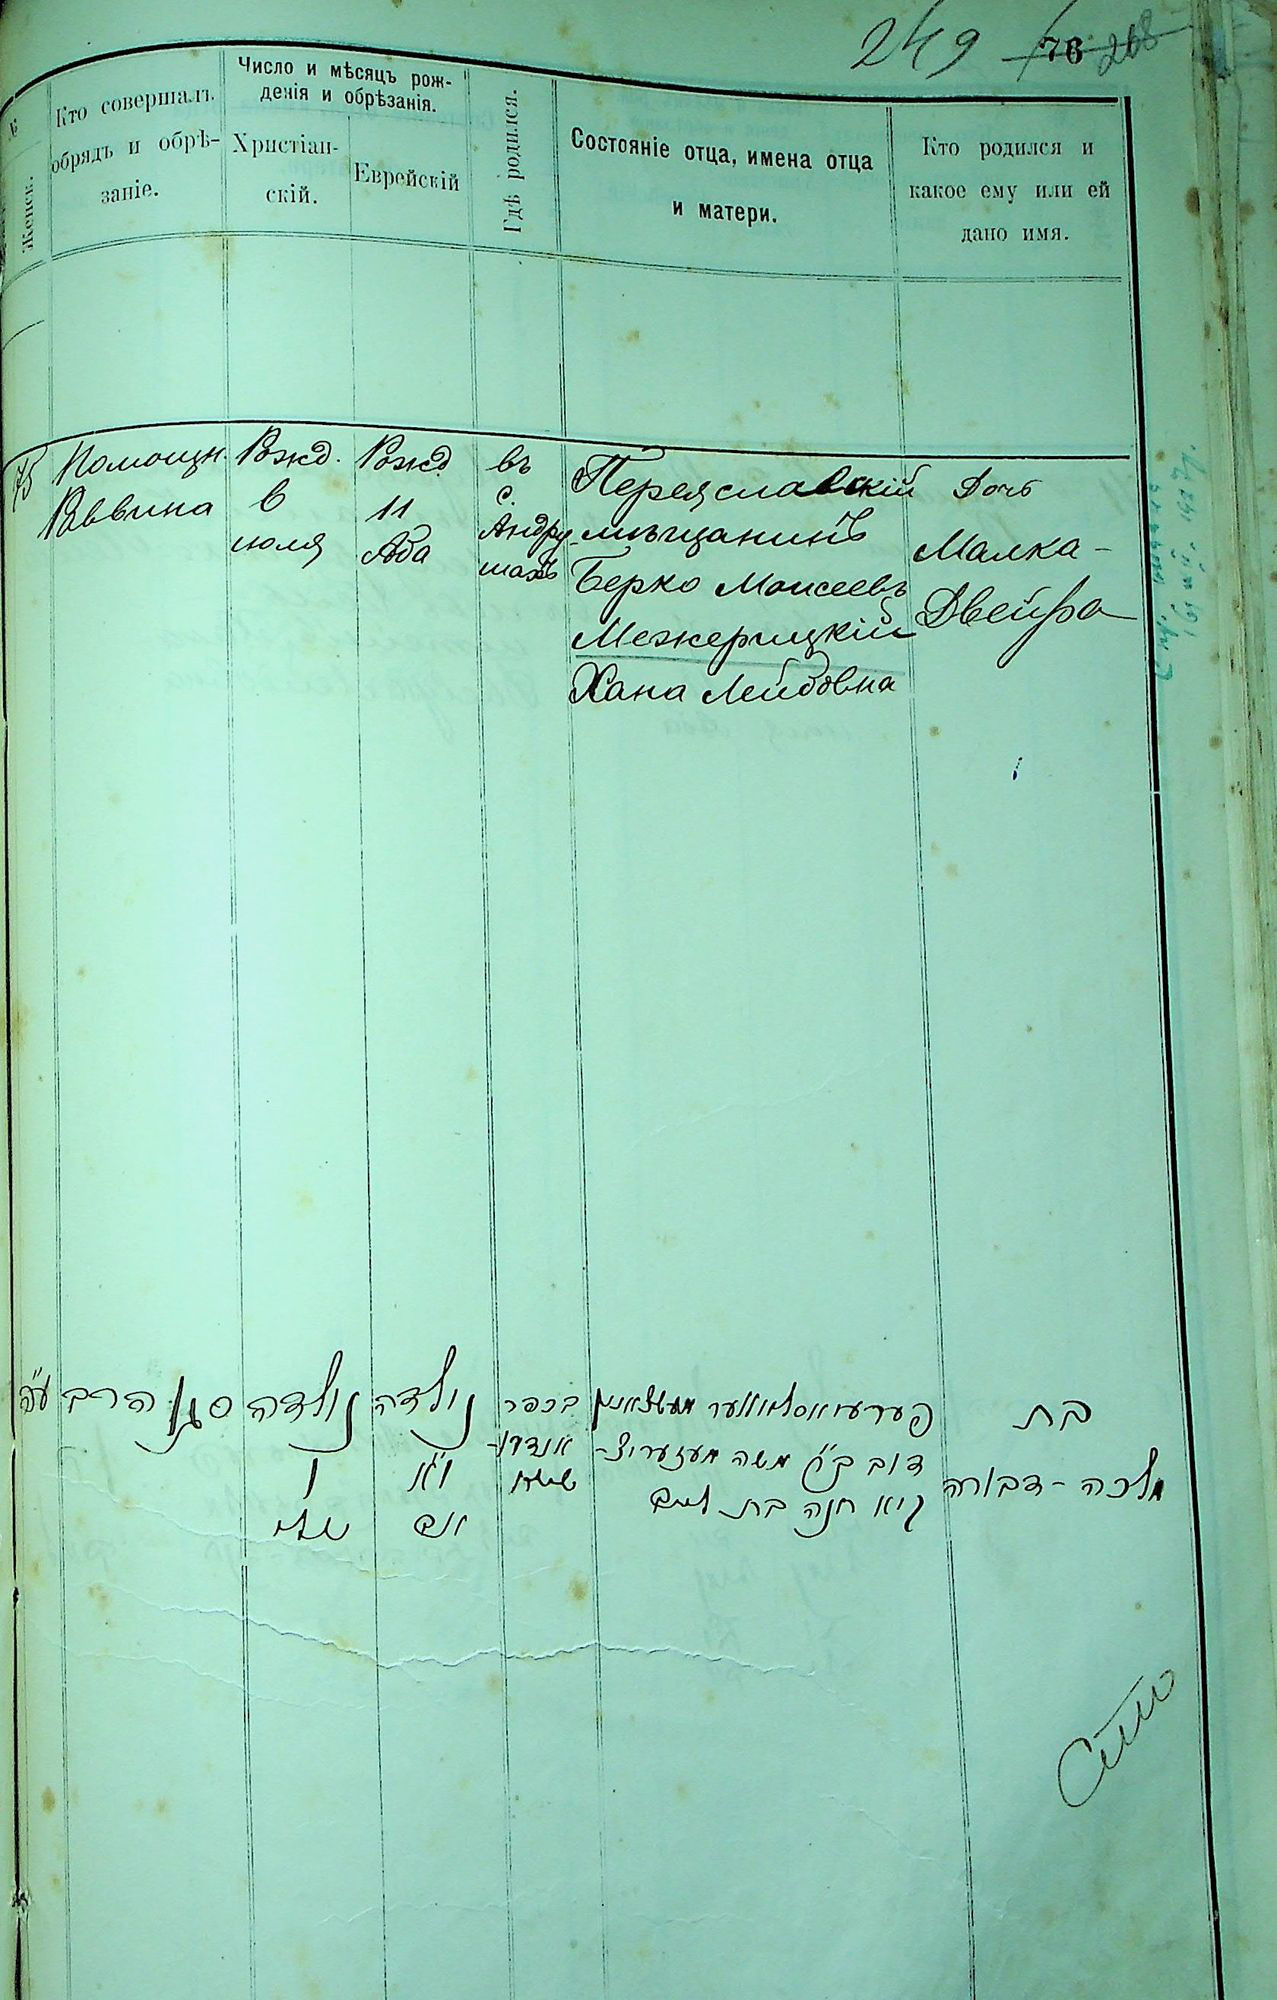 249 76 268
№
Женск.
Кто совершалъ
обрядъ и обрѣ-
заніе.
Число и мѣсяцъ рож-
денія и обрѣзанія.
Христіан-
скій.
Еврейскій
Гдѣ родился.
Состояніе отца, имена отца
и матери.
Кто родился и
какое ему или ей
дано имя.
75
Помощн.
Раввина
Рожд.
6
июля
Рожд
11
Аба
въ
с.
Андру-
шахъ
Переяславскій
мѣщанинъ
Берко Моисеевъ
Межерицкій
Хана Лейбовна
Дочь
Малка-
Двейра
ע"ה
סגן הרב
נולדה
ו
יולי
נולדה
י"א
אב
בכפר
אנדרו-
שעוו
פערעיאסלאווער
דוב ב"ר משה מעזעריצ-
קיא חנה בת ליב
בת
מלכה-דבורה
Сто